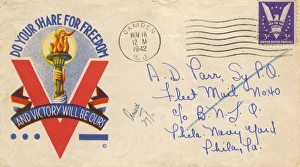 DO YOUR SHARE FOR FREEDOM
AND VICTORY WILL BE OUR!
CAMDEN
NOV 16
12 M
1942
N.J.
A. D. Parr, Sy
Fleet Mail
c/o B.N.Q.
Phila Navy Yard
Phila, Pa.